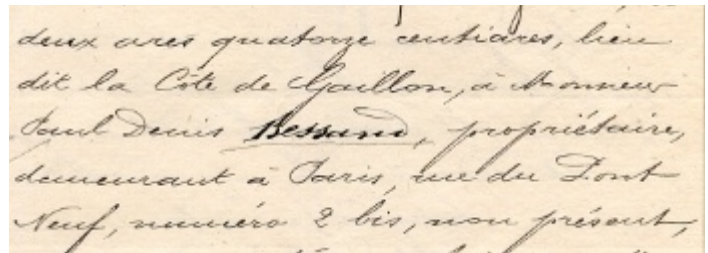 deux ares quatorze centiares, lieu
dit la Côte de Gaillon, à Monsieur
Paul Denis Bessand, propriétaire,
demeurant à Paris, rue du Pont
Neuf, numéro 2 bis, non présent,